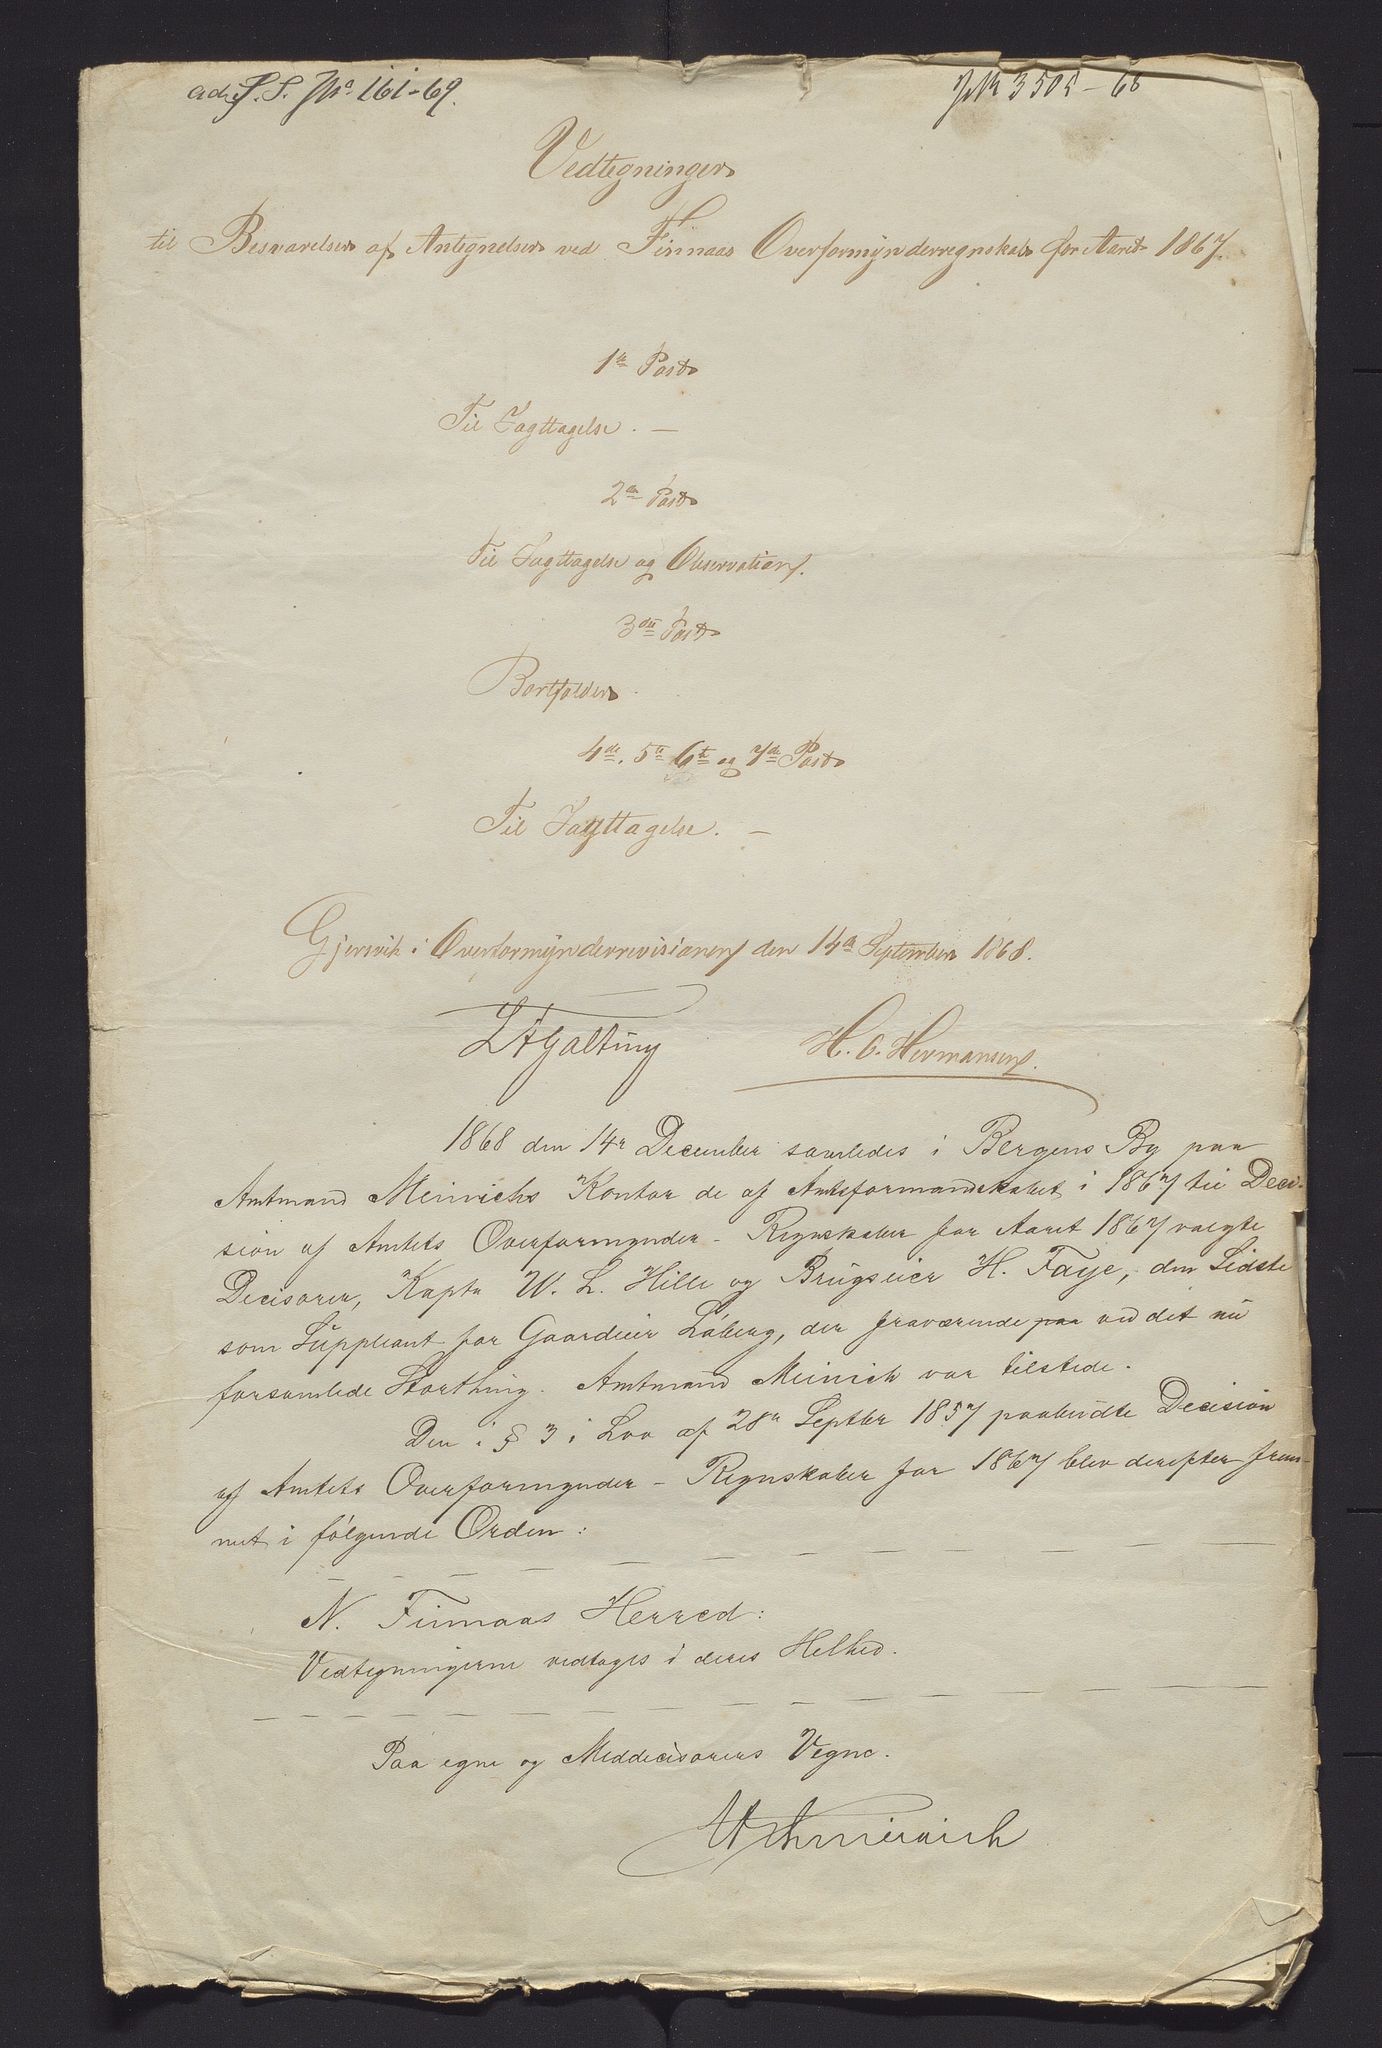 ad J. S. No 161-69.
JN 3505-68
Vedtegninger
til Besvarelser af Antegnelser ved Finnaas Overformynderregnskab for Aaret 1867.
1ste Post
Til Iagttagelse. —
2den Post
Til Iagttagelse og Observation.
3die Post
Bortfalder.
4de, 5te 6te og 7de Post
Til Iagttagelse. —
Gjersvik i Overformynderrevisionen den 14de September 1868.
Galtung
H. O. Hermansen.
1868 den 14de December samledes i Bergens By paa
Amtmand Meinichs Kontor de af Amtsformandskabet i 1867 til Deci-
sion af Amtets Overformynder-Regnskaber for Aaret 1867 valgte
Decisorer, Kaptn W. L. Hille og Brugseier H. Faye, den Sidste
som Suppleant for Gaardeier Løberg, der fraværende paa ved det nu
forsamlede Storthing. Amtmand Meinich var tilstede.
Den i § 3 i Lov af 28de Septbr 1857 paabudte Decision
af Amtets Overformynder-Regnskaber for 1867 blev derefter frem-
met i følgende Orden:
N. Finnaas Herred:
Vedtegningerne vedtages i deres Helhed.
Paa egne og Meddecisorers Vegne.
Meinich